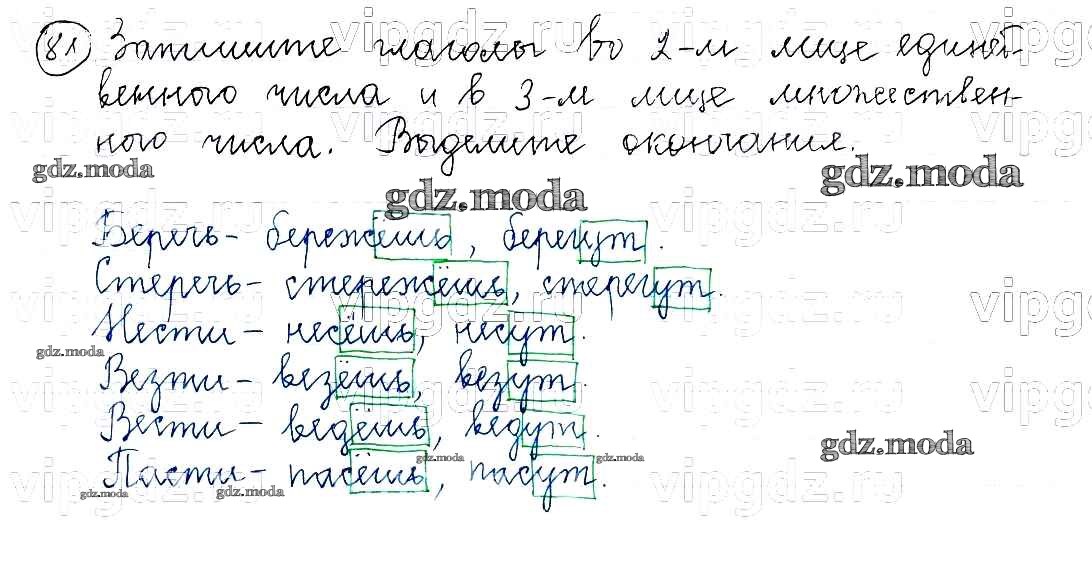 81 Запишите глаголы во 2-м лице единст-
венного числа и в 3-м лице множествен-
ного числа. Выделите окончания.
gdz.moda
gdz.moda
gdz.moda
Беречь- бережёшь, берегут.
Стеречь- стережёшь, стерегут.
Нести- несёшь, несут.
gdz.moda
Везти- везёшь, везут.
Вести- ведёшь, ведут.
gdz.moda
gdz.moda
gdz.moda
Пасти- пасёшь, пасут.
gdz.moda
gdz.moda